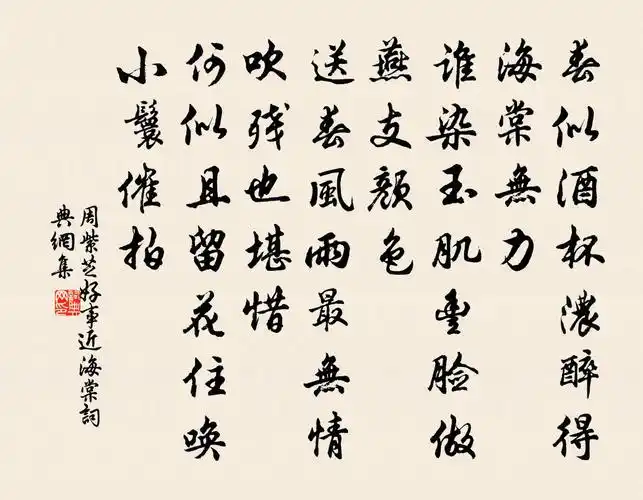 春似酒杯濃醉得
海棠無力
谁染玉肌豐脸做
燕支颜色
送春風雨最無情
吹残也堪惜
何似且留花住唤
小鬟催拍
周紫芝好事近海棠詞
典網集